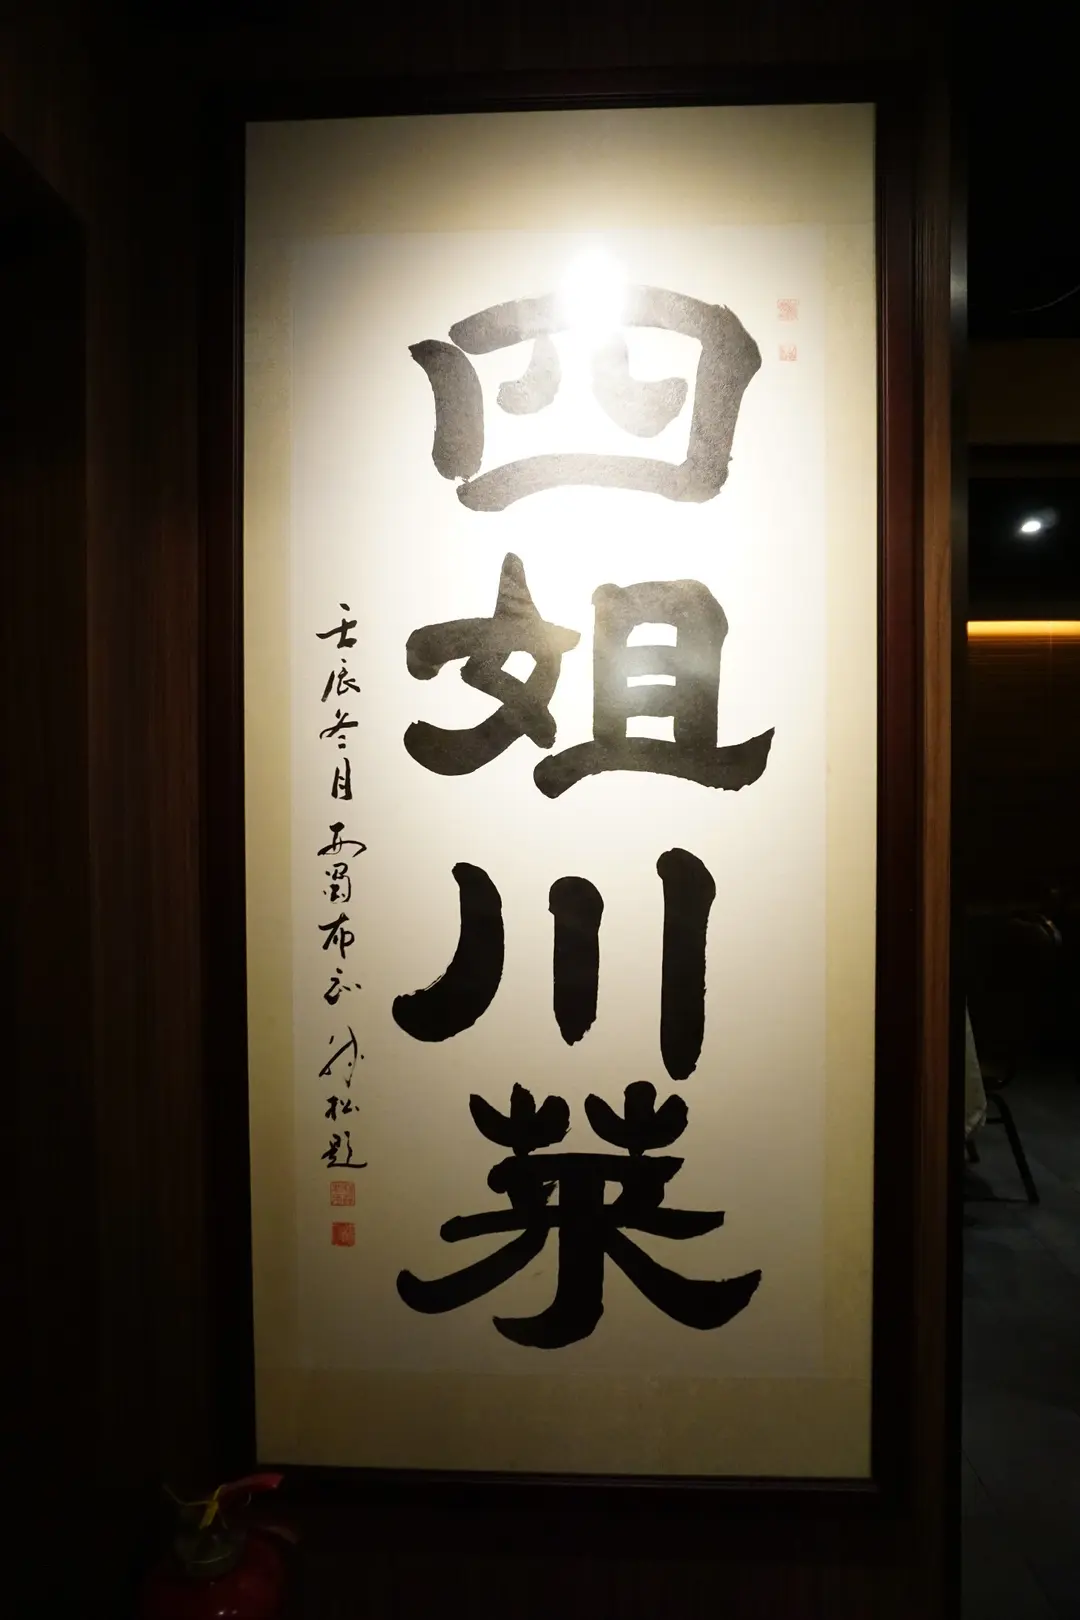 四姐川菜
壬辰冬月西蜀布衣松题